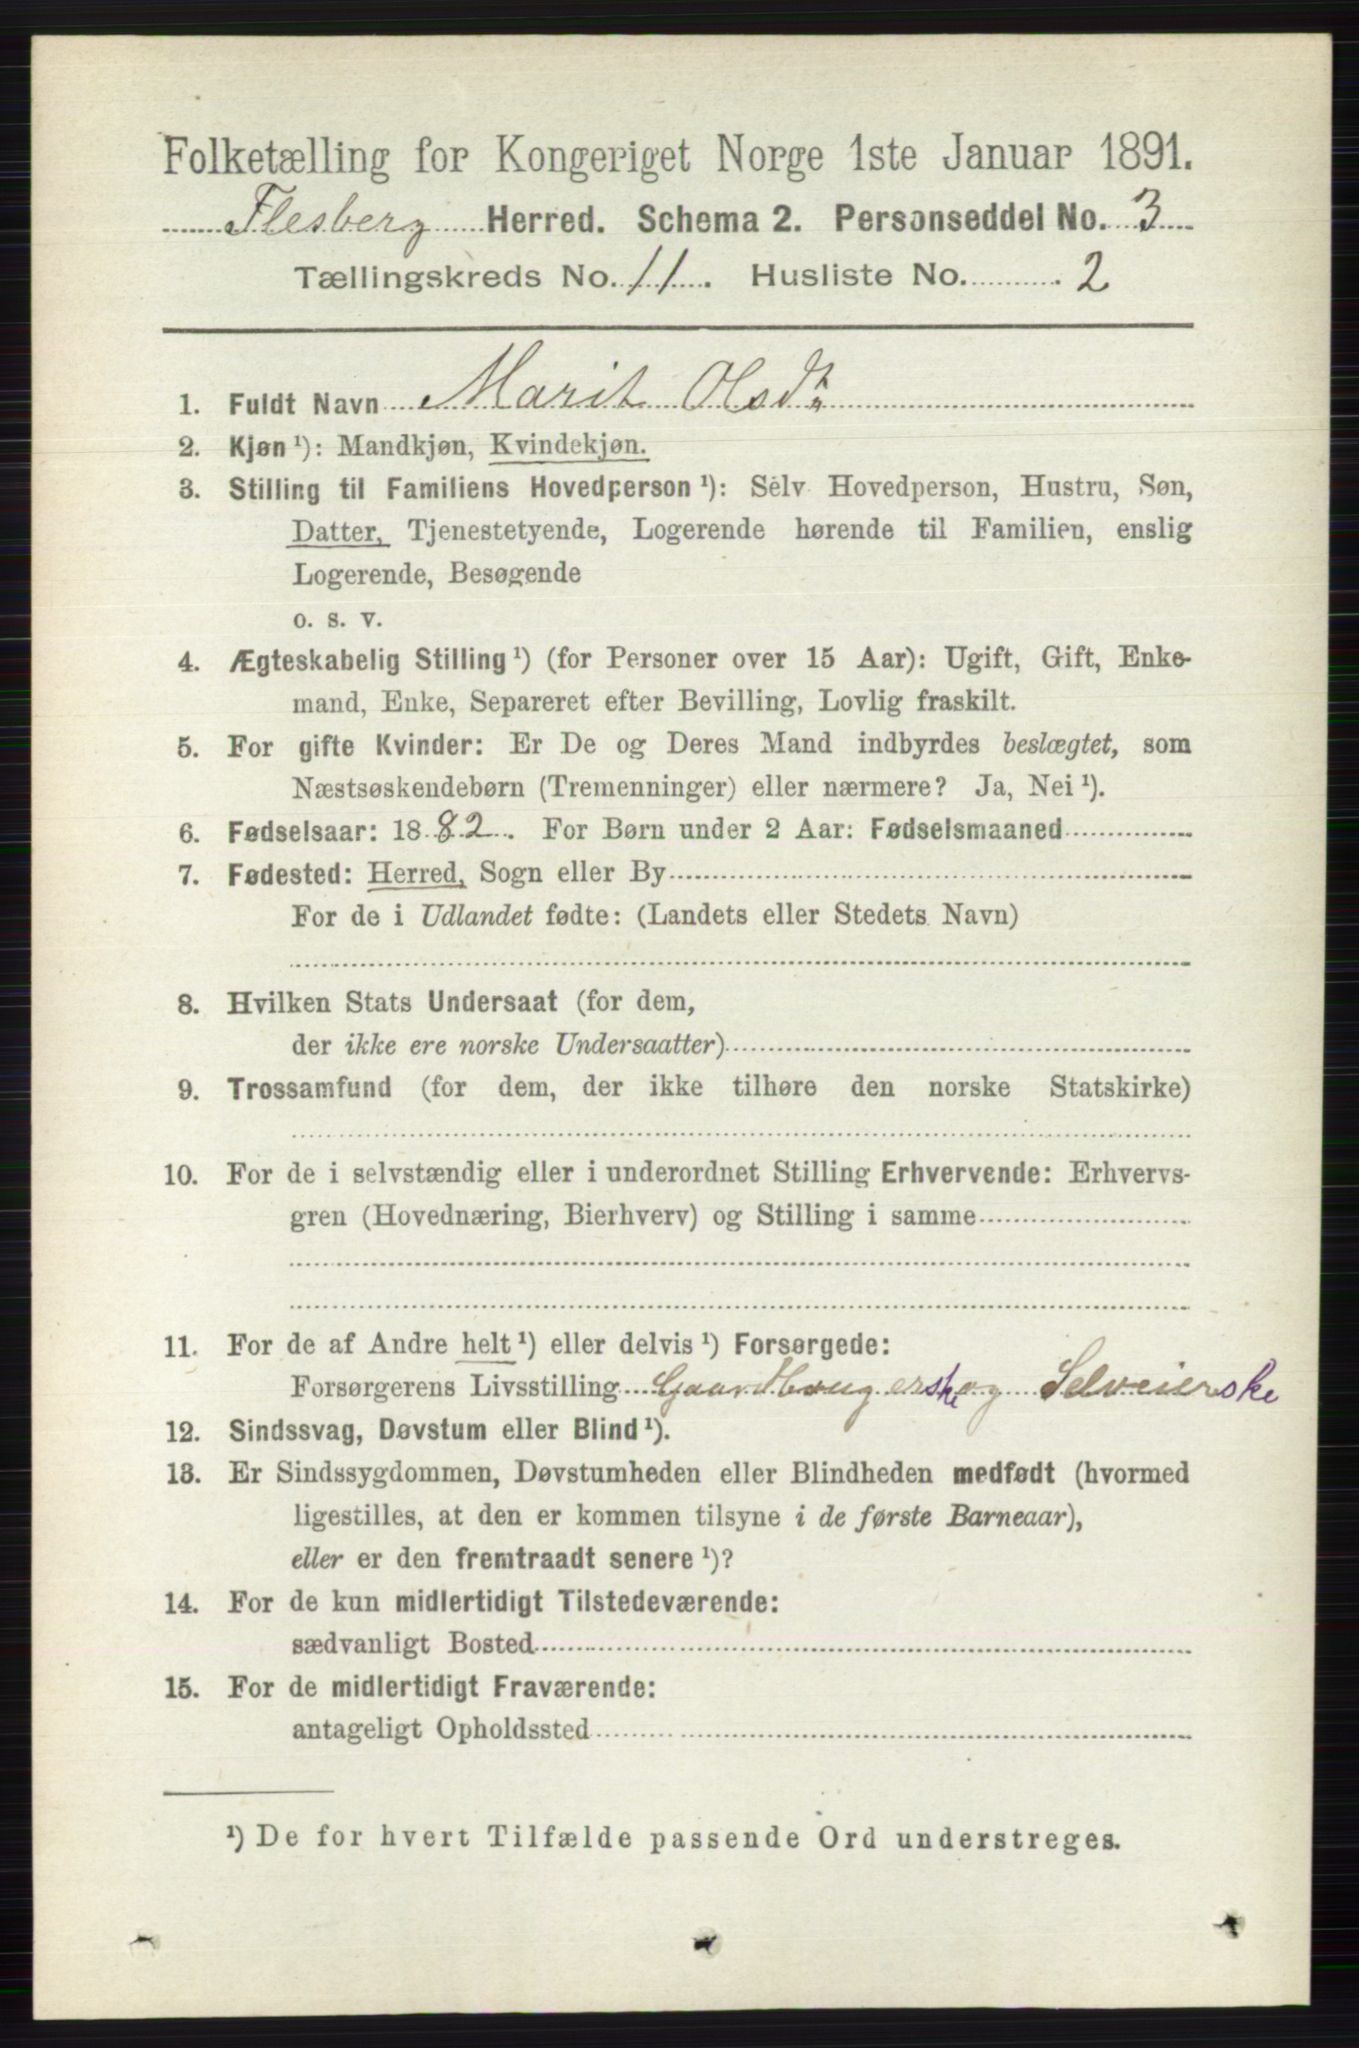 Folketælling for Kongeriget Norge 1ste Januar 1891.
Flesberg Herred. Schema 2. Personseddel No. 3
Tællingskreds No. 11. Husliste No. 2
1. Fuldt Navn Marit Olsdtr
2. Kjøn ¹): Mandkjøn, Kvindekjøn.
3. Stilling til Familiens Hovedperson ¹): Selv Hovedperson, Hustru, Søn,
Datter, Tjenestetyende, Logerende hørende til Familien, enslig
Logerende, Besøgende
o. s. v.
4. Ægteskabelig Stilling ¹) (for Personer over 15 Aar): Ugift, Gift, Enke-
mand, Enke, Separeret efter Bevilling, Lovlig fraskilt.
5. For gifte Kvinder: Er De og Deres Mand indbyrdes beslægtet, som
Næstsøskendebørn (Tremenninger) eller nærmere? Ja, Nei ¹).
6. Fødselsaar: 1882. For Børn under 2 Aar: Fødselsmaaned
7. Fødested: Herred, Sogn eller By
For de i Udlandet fødte: (Landets eller Stedets Navn)
8. Hvilken Stats Undersaat (for dem,
der ikke ere norske Undersaatter)
9. Trossamfund (for dem, der ikke tilhøre den norske Statskirke)
10. For de i selvstændig eller i underordnet Stilling Erhvervende: Erhvervs-
gren (Hovednæring, Bierhverv) og Stilling i samme
11. For de af Andre helt ¹) eller delvis ¹) Forsørgede:
Forsørgerens Livsstilling Gaardbrugerske og Selveierske
12. Sindssvag, Døvstum eller Blind ¹).
13. Er Sindssygdommen, Døvstumheden eller Blindheden medfødt (hvormed
ligestilles, at den er kommen tilsyne i de første Barneaar),
eller er den fremtraadt senere ¹)?
14. For de kun midlertidigt Tilstedeværende:
sædvanligt Bosted
15. For de midlertidigt Fraværende:
antageligt Opholdssted
¹) De for hvert Tilfælde passende Ord understreges.